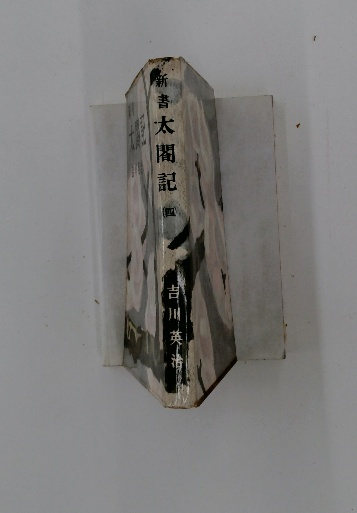 新書太閤記
(四)
吉川英治